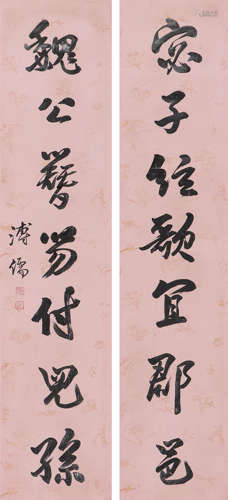 宓子弦歌宜郡邑
魏公簪笏付兒孫
溥儒